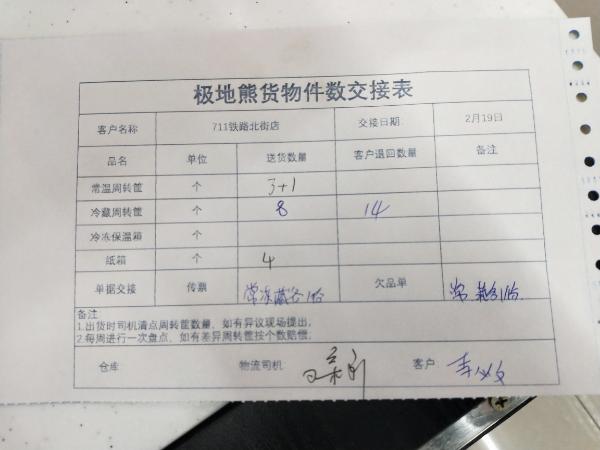 极地熊货物件数交接表
客户名称 711铁路北街店 交接日期 2月19日
品名 单位 送货数量 客户退回数量 备注
常温周转筐 个 3+1
冷藏周转筐 个 8 14
冷冻保温箱 个
纸箱 个 4
单据交接 传票 常冻藏各1份 欠品单 常
备注:
1.出货时司机清点周转筐数量，如有异议现场提出;
2.每周进行一次盘点，如有差异周转筐按个数赔偿;
仓库 物流司机: 客户: